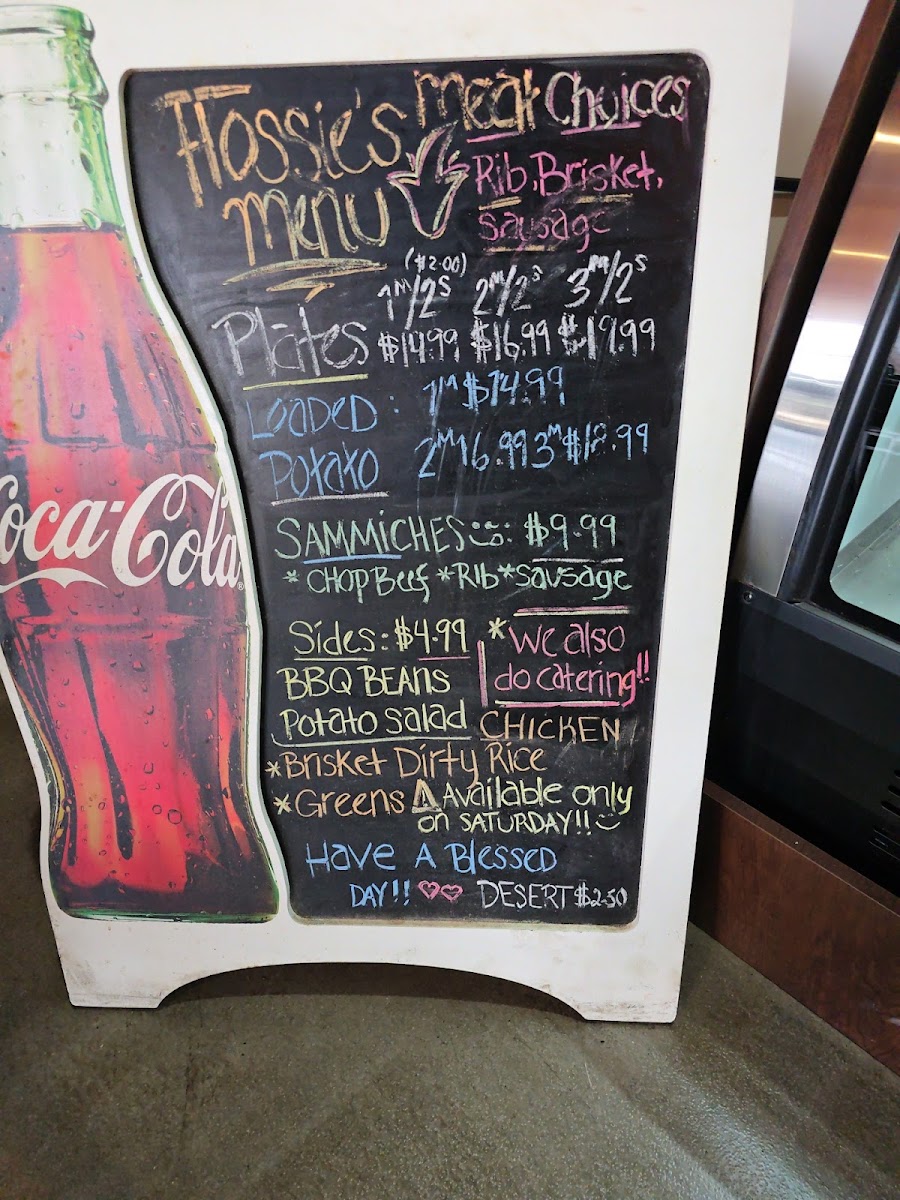 Hossie's
menu
meat Choices
Rib, Brisket,
sausage
($2.00)
1M/2S 2M/2S 3M/2S
Plates $14.99 $16.99 $19.99
Loaded : 1M $14.99
Potato 2M 16.99 3M $18.99
SAMMICHES : $9.99
* CHOP Beef *RIb *Sausage
Sides: $4.99
BBQ BEANS
Potato Salad
*We also
do catering!!
CHICKEN
*Brisket Dirty Rice
*Greens Available only
on SATURDAY!!
Have A Blessed
DAY!! DESERT $2.50
Coca-Cola